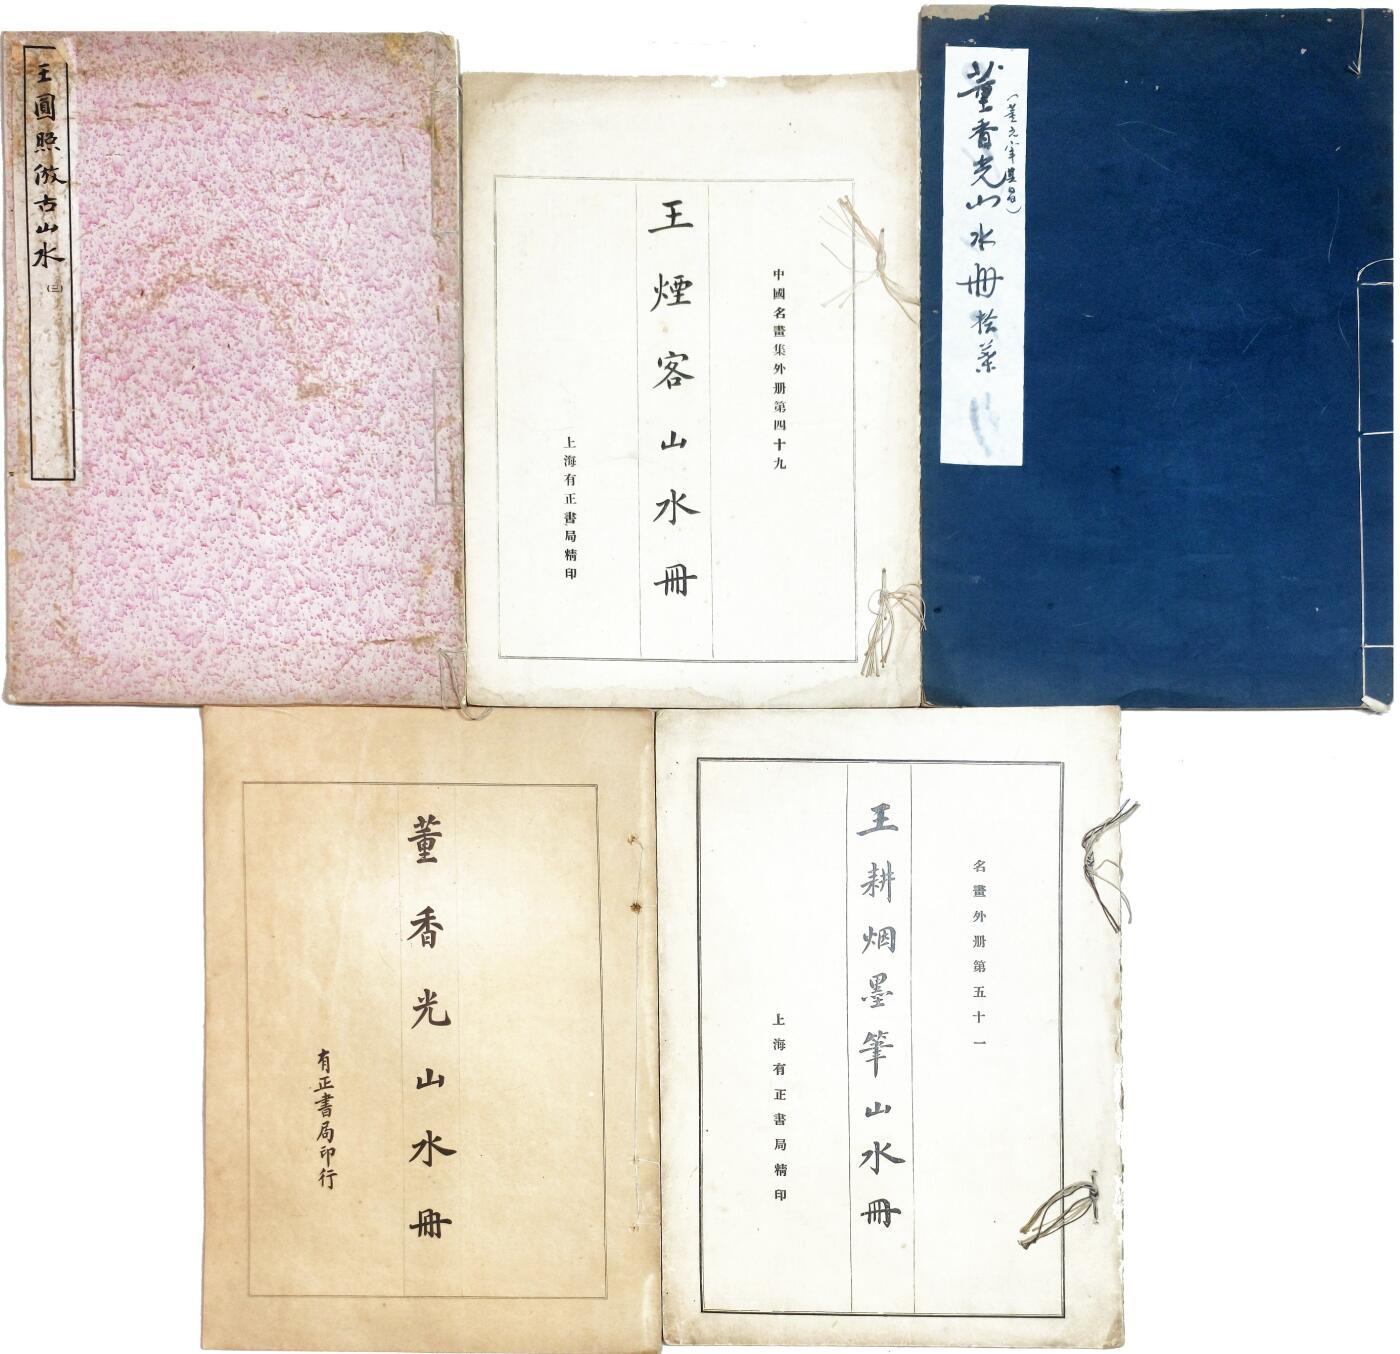 王圓照倣古山水
(三)
中國名畫集外册第四十九
王煙客山水冊
上海有正書局精印
董香光山水冊拾葉
董香光山水冊
有正書局印行
名畫外册第五十一
王耕烟墨筆山水冊
上海有正書局精印